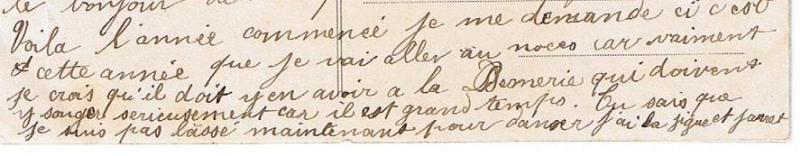 le bonjour de
Voila l'année commencé je me demande ci c'est
cette année que je vai aller au noces car vraiment
je crois qu'il doit y en avoir a la Besnerie qui doivent
y songer serieusement car il est grand temps. Tu sais que
je suis pas lassé maintenant pour danser j'ai la gigue et jarret